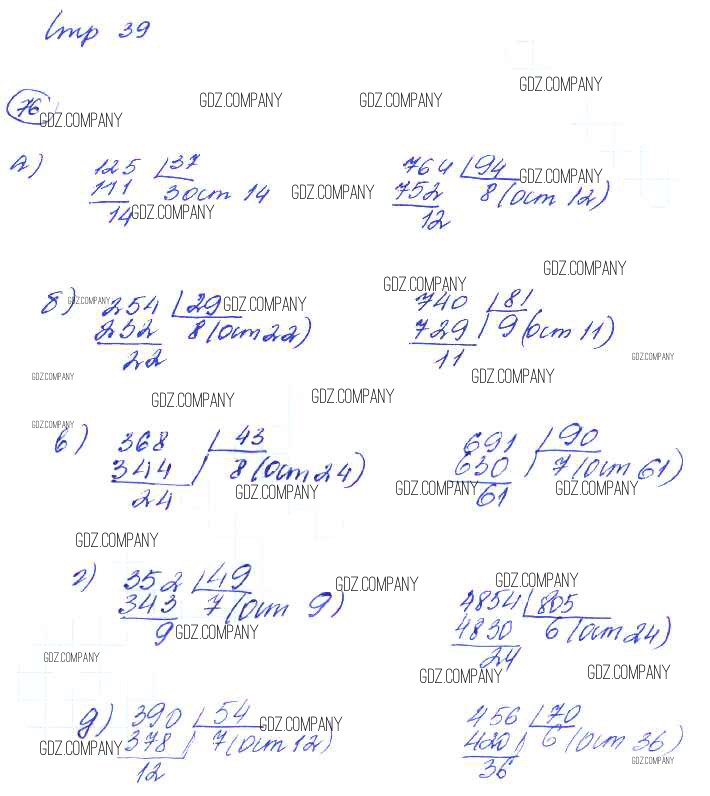 Стр 39
GDZ.COMPANY
GDZ.COMPANY GDZ.COMPANY
76 GDZ.COMPANY
а) 125 | 37 764 | 94 GDZ.COMPANY
111 3 ост 14 GDZ.COMPANY 752 8 (ост 12)
14 GDZ.COMPANY 12
GDZ.COMPANY
GDZ.COMPANY
б) GDZ.COMPANY 254 | 29 GDZ.COMPANY 740 | 81
232 8 (ост 22) 729 9 (ост 11)
22 11 GDZ.COMPANY
GDZ.COMPANY GDZ.COMPANY
GDZ.COMPANY GDZ.COMPANY
GDZ.COMPANY
в) 368 | 43 691 | 90
344 8 (ост 24) 630 7 (ост 61)
24 GDZ.COMPANY GDZ.COMPANY 61 GDZ.COMPANY
GDZ.COMPANY
г) 352 | 49 GDZ.COMPANY GDZ.COMPANY
343 7 (ост 9) 4854 | 805
9 GDZ.COMPANY 4830 6 (ост 24)
GDZ.COMPANY 24
GDZ.COMPANY GDZ.COMPANY
д) 390 | 54 GDZ.COMPANY 456 | 70
GDZ.COMPANY 378 7 (ост 12) 420 6 (ост 36)
12 36 GDZ.COMPANY